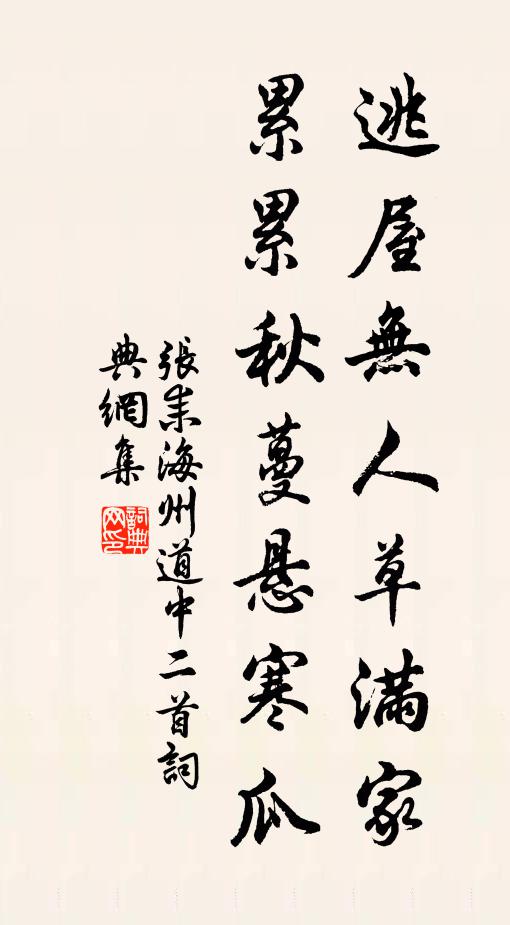 逃屋無人草滿家
累累秋蔓懸寒瓜
張耒海州道中二首詞
典網集
詞典網印